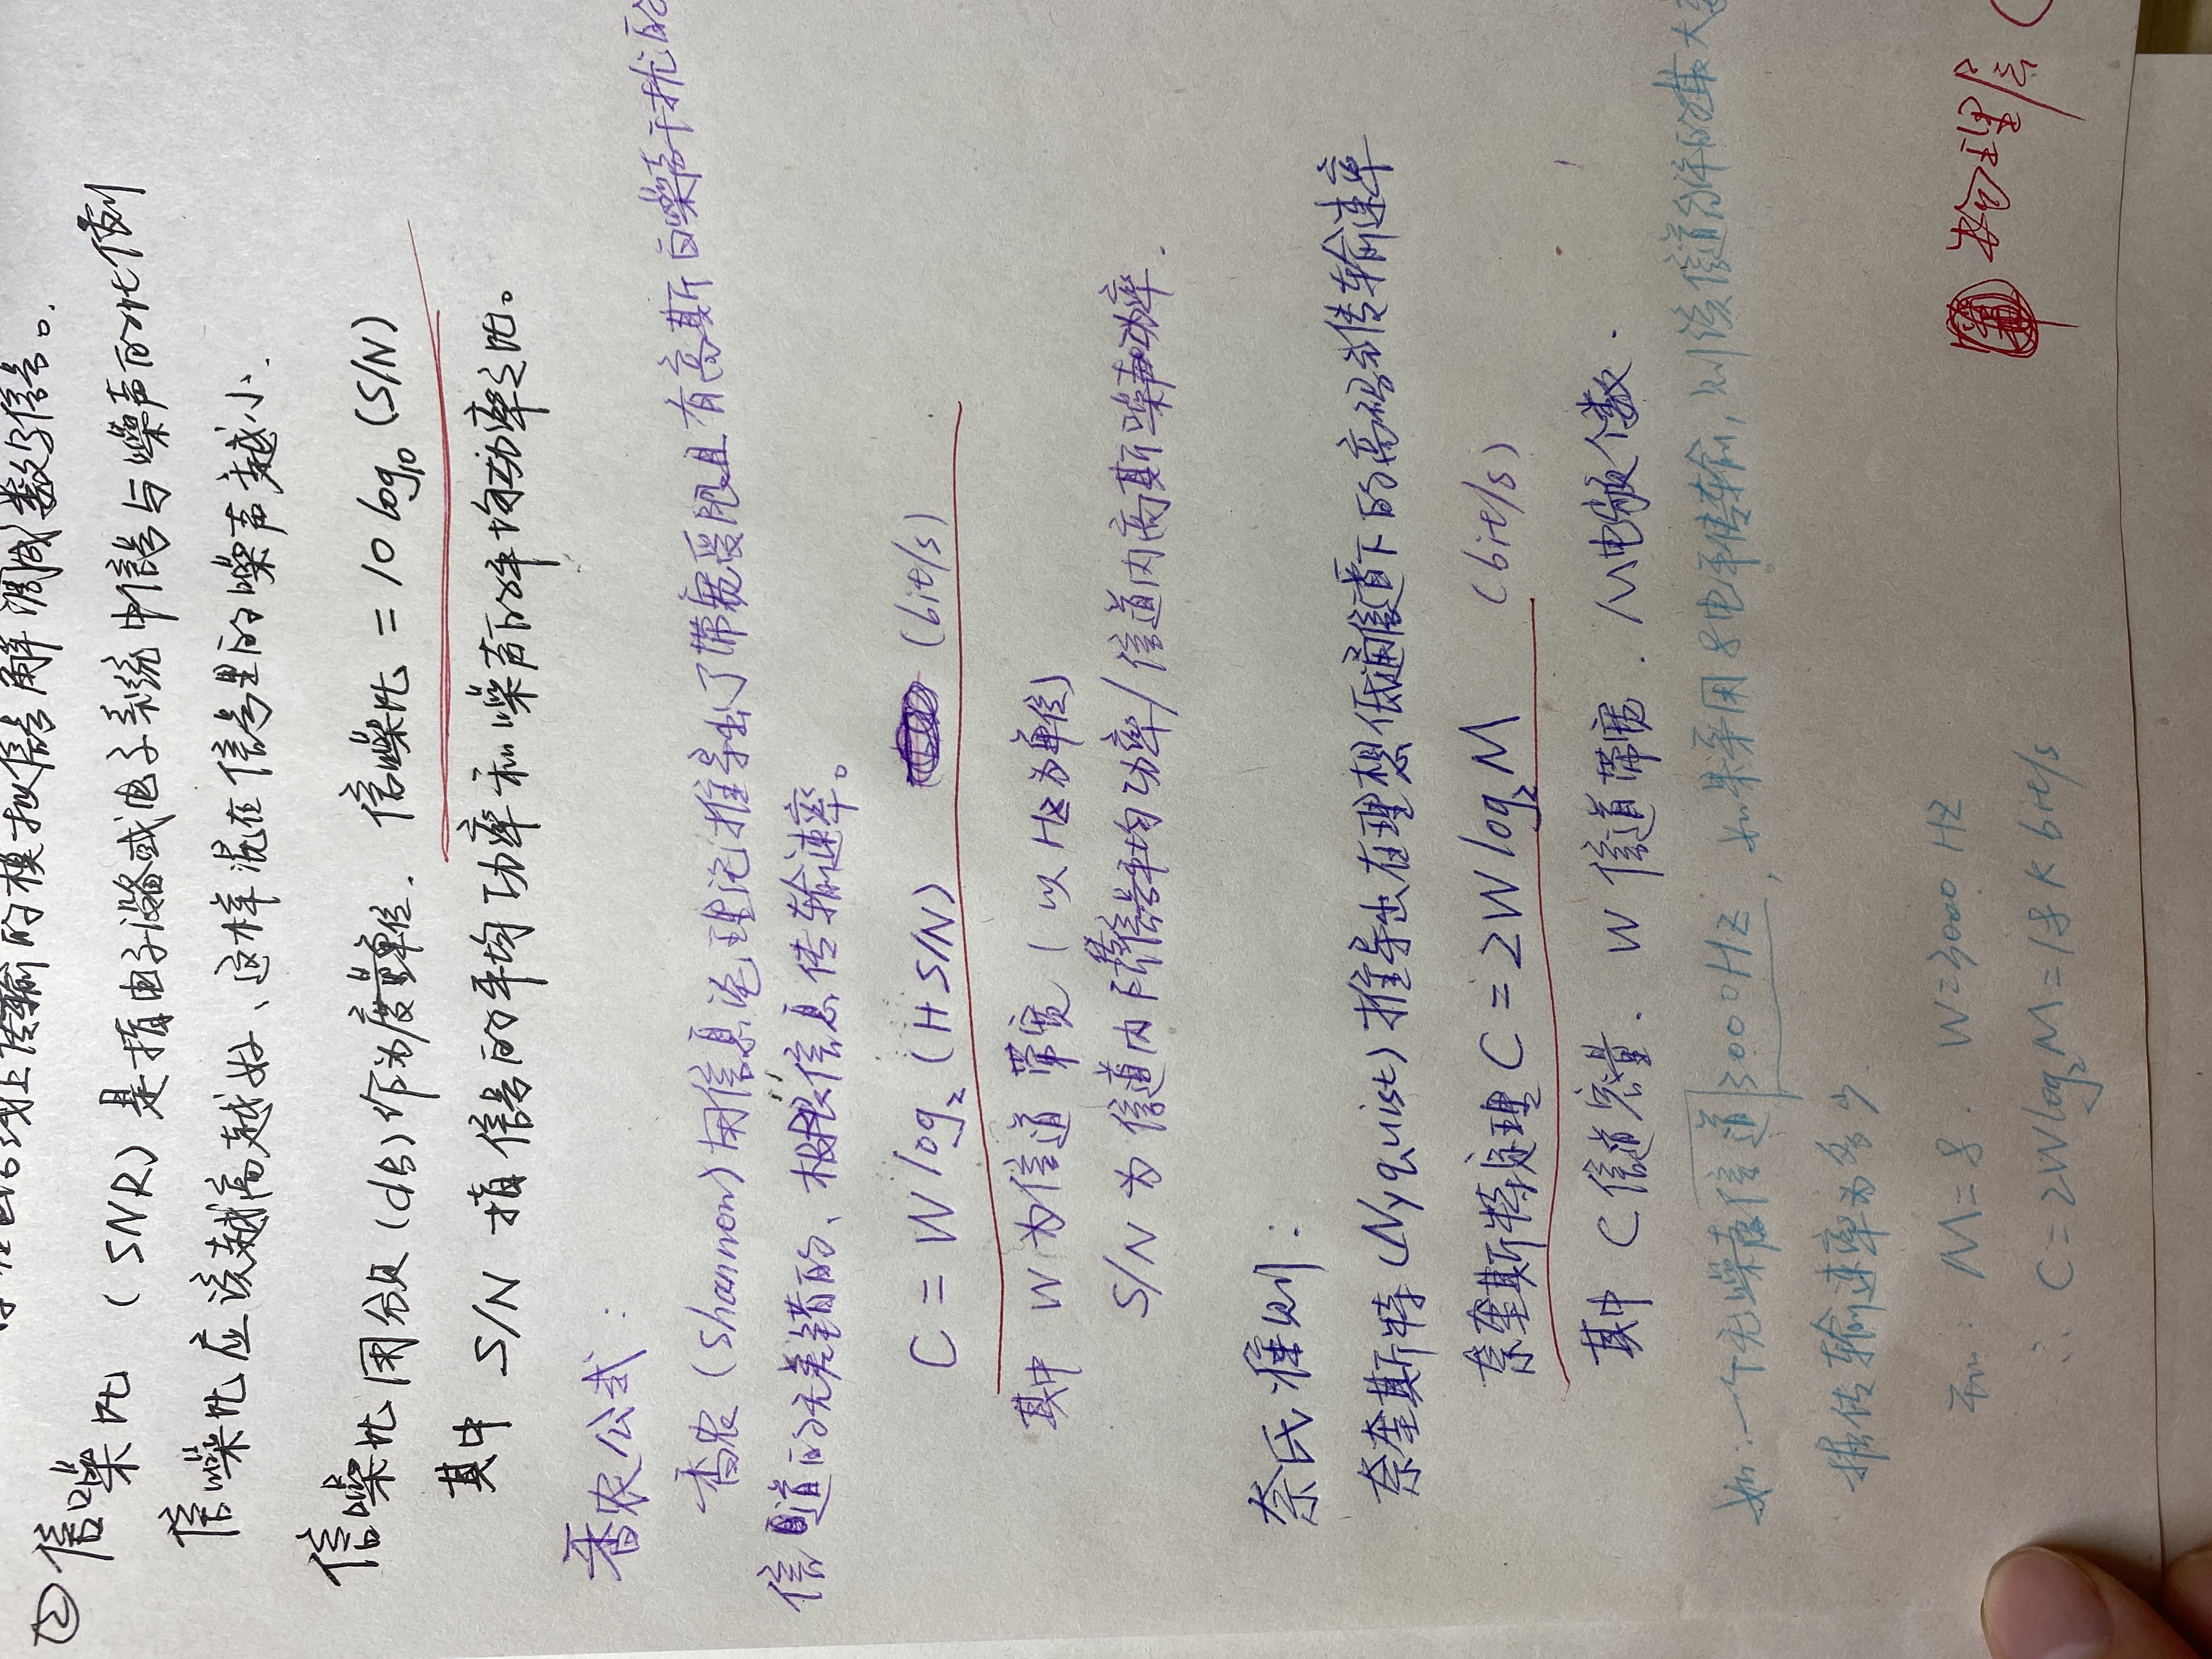 线上传输的模拟信号解调成数字信号。
② 信噪比 (SNR) 是指电子设备或电子系统中信号与噪声的比例
信噪比应该越高越好、这样混在信号里的噪声越小.
信噪比用分贝(dB)作为度量单位. 信噪比 = 10 log₁₀ (S/N)
其中 S/N 指信号的平均功率和噪声的平均功率之比。
香农公式:
香农 (Shannon) 用信息论理论推导出了带宽受限且有高斯白噪声干扰的
信道的无差错的、极限信息传输速率。
C = W log₂ (1+S/N) (bit/s)
其中 W为信道带宽 (以Hz为单位)
S/N 为信道内信号平均功率/信道内高斯噪声功率.
奈氏准则:
奈奎斯特 (Nyquist) 推导出在理想低通信道下的高码求传输速率
奈奎斯特定理 C = 2W log₂ M (bit/s)
其中 C信道容量. W 信道带宽. M电频个数.
如: 一个无噪声信道3000HZ, 如果采用8电平传输, 则该信道允许的最大数
据传输速率为多少
M=8. W=3000 HZ
∴ C=2Wlog₂M=18 K bit/s
物理层